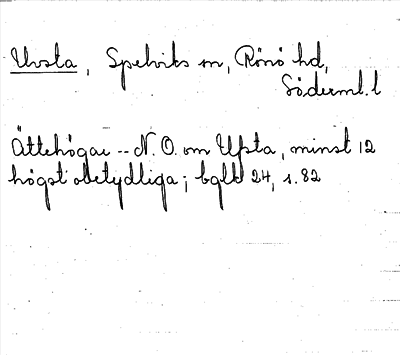 Uvsta, Spelviks sn, Rönö hd,
Söderml. l
Ättehögar -- N. O. om Ufsta, minst 12
högst obetydliga; bglb 24, s. 82